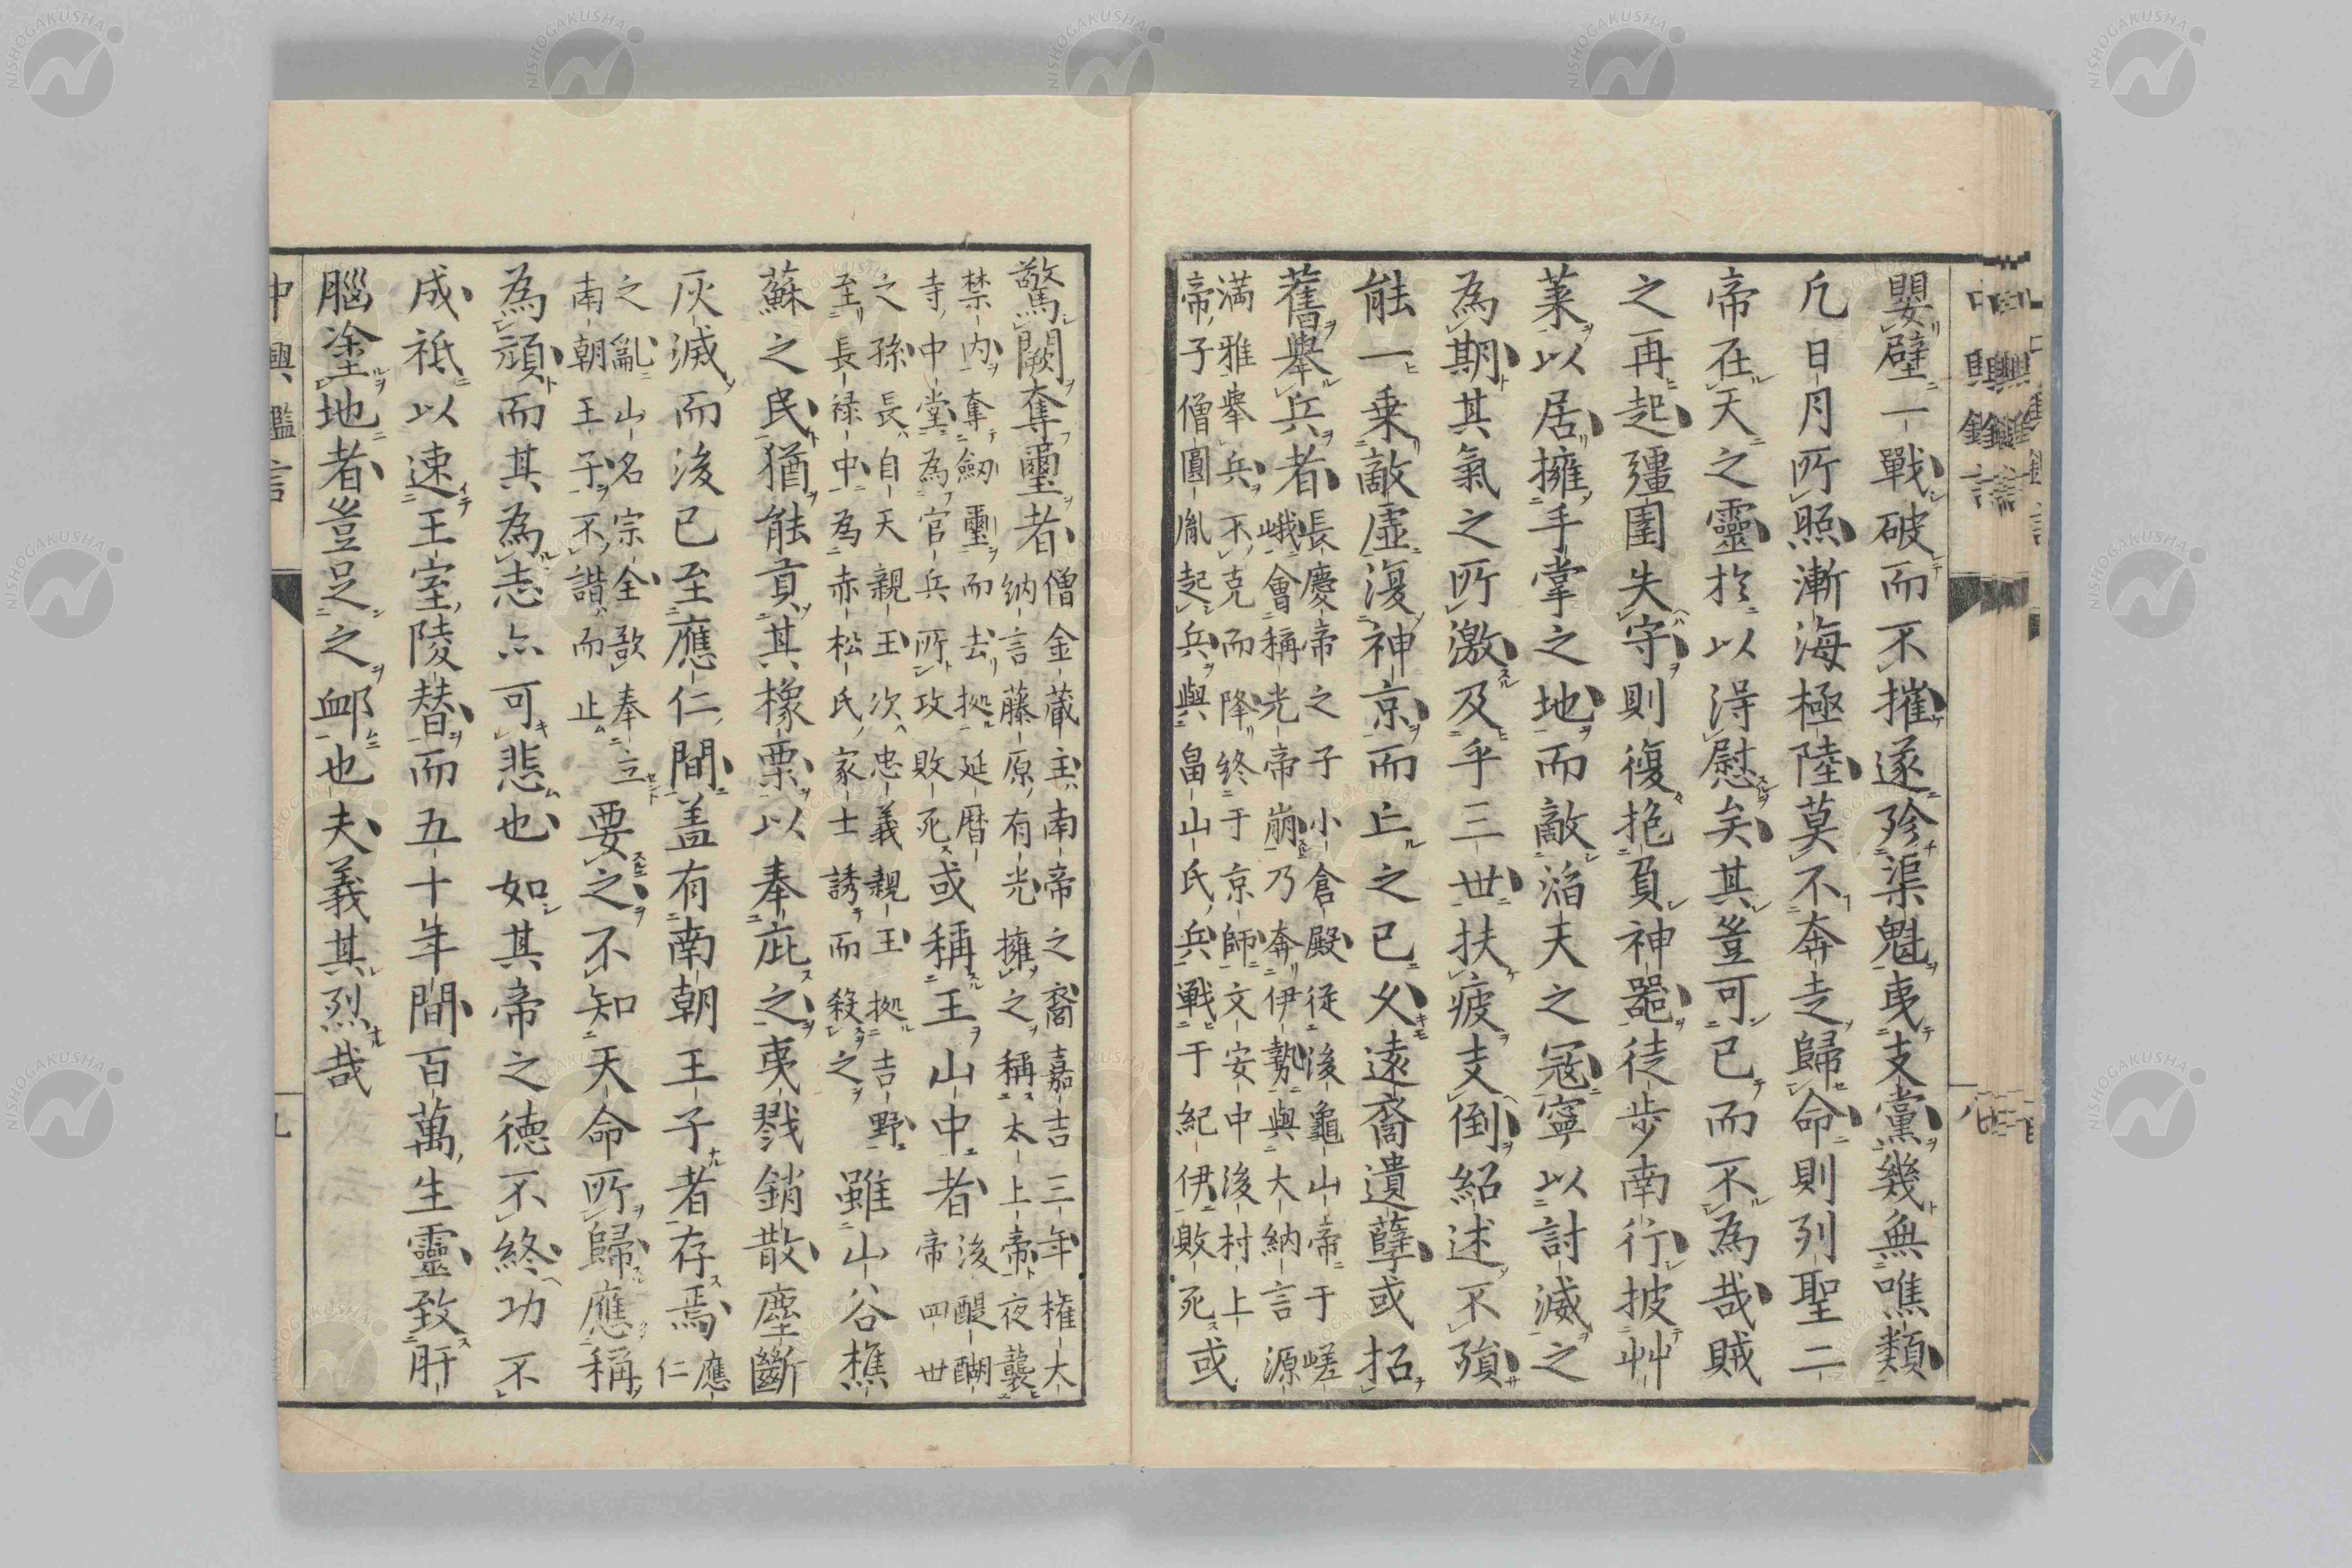 嬰壁一戰破而不摧遂殄渠魁夷支黨幾無噍類
凡日月所照漸海極陸莫不奔走歸命則列聖二
帝在天之靈於以得慰矣其豈可已而不為哉賊
之再起彊圉失守則復抱負神器徒步南行披艸
萊以居擁手掌之地而敵滔天之冦寧以討滅之
為期其氣之所激及乎三世扶疲支倒紹述不殞
能一乗敵虛復神京而止之已久遠裔遺孽或招
舊舉兵者
長慶帝之子小倉殿從後龜山帝于嵯
峨會稱光帝崩乃奔伊勢與大納言源
満雅舉兵不克而降終于京師文安中後村上
帝子僧圓胤起兵與畠山氏兵戰于紀伊敗死
或
驚闕奪璽者
僧金蔵主南帝之裔嘉吉三年権大
納言藤原有光擁之稱太上帝夜襲
禁内奪劔璽而去拠延暦
寺中堂為官兵所攻敗死
或稱王山中者
後醍醐
帝四世
之孫長自天親王次忠義親王拠吉野
至長禄中為赤松氏家士誘而殺之
雖山谷樵
蘇之民猶能貢其橡栗以奉庇之夷戮銷散塵斷
灰滅而後已至應仁間盖有南朝王子者存焉
應
仁
之亂山名宗全欲奉立
南朝王子不諧而止
要之不知天命所歸應稱
為頑而其為志亦可悲也如其帝之徳不終功不
成祗以速王室陵替而五十年間百萬生靈致肝
腦塗地者豈足之卹也夫義其烈哉
中興鑑言
九